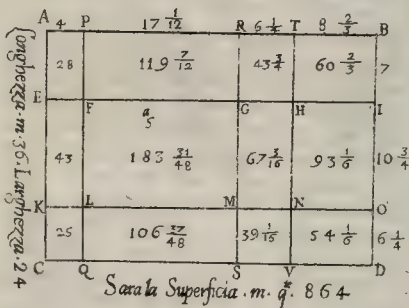 A 4 P 17 1/12 R 6 1/4 T 8 2/3 B
28 119 7/12 43 3/4 60 2/3 7
E F G H I
a
5
43 183 31/48 67 3/16 93 1/6 10 3/4
K L M N O
25 106 37/48 39 1/16 54 1/6 6 1/4
C Q S V D
Longhezza .m. 36. Larghezza. 24
Sara la Superficia .m. q.ᵉ 864